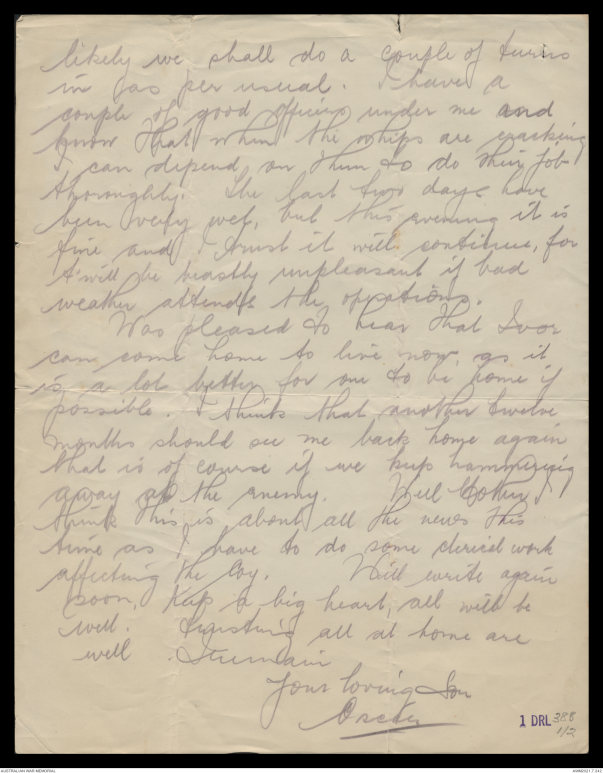 likely we shall do a couple of turns
in as per usual. I have a
couple of good officers under me and
know that when the whips are cracking
I can depend on them to do their job
thoroughly. The last two days have
been very wet, but this evening it is
fine and I trust it will continue, for
t'will be beastly unpleasant if bad
weather attends the operations.
Was pleased to hear that Ivor
can come home to live now, as it
is a lot better for one to be home if
possible. I think that another twelve
months should see me back home again
that is of course if we keep hammering
away at the enemy. Well Mother I
think this is about all the news this
time as I have to do some clerical work
affecting the Coy. Will write again
soon, Keep a big heart, all will be
well. Trusting all at home are
well. I remain
Your loving Son
Oscar
1 DRL 388
1/2
AUSTRALIAN WAR MEMORIAL